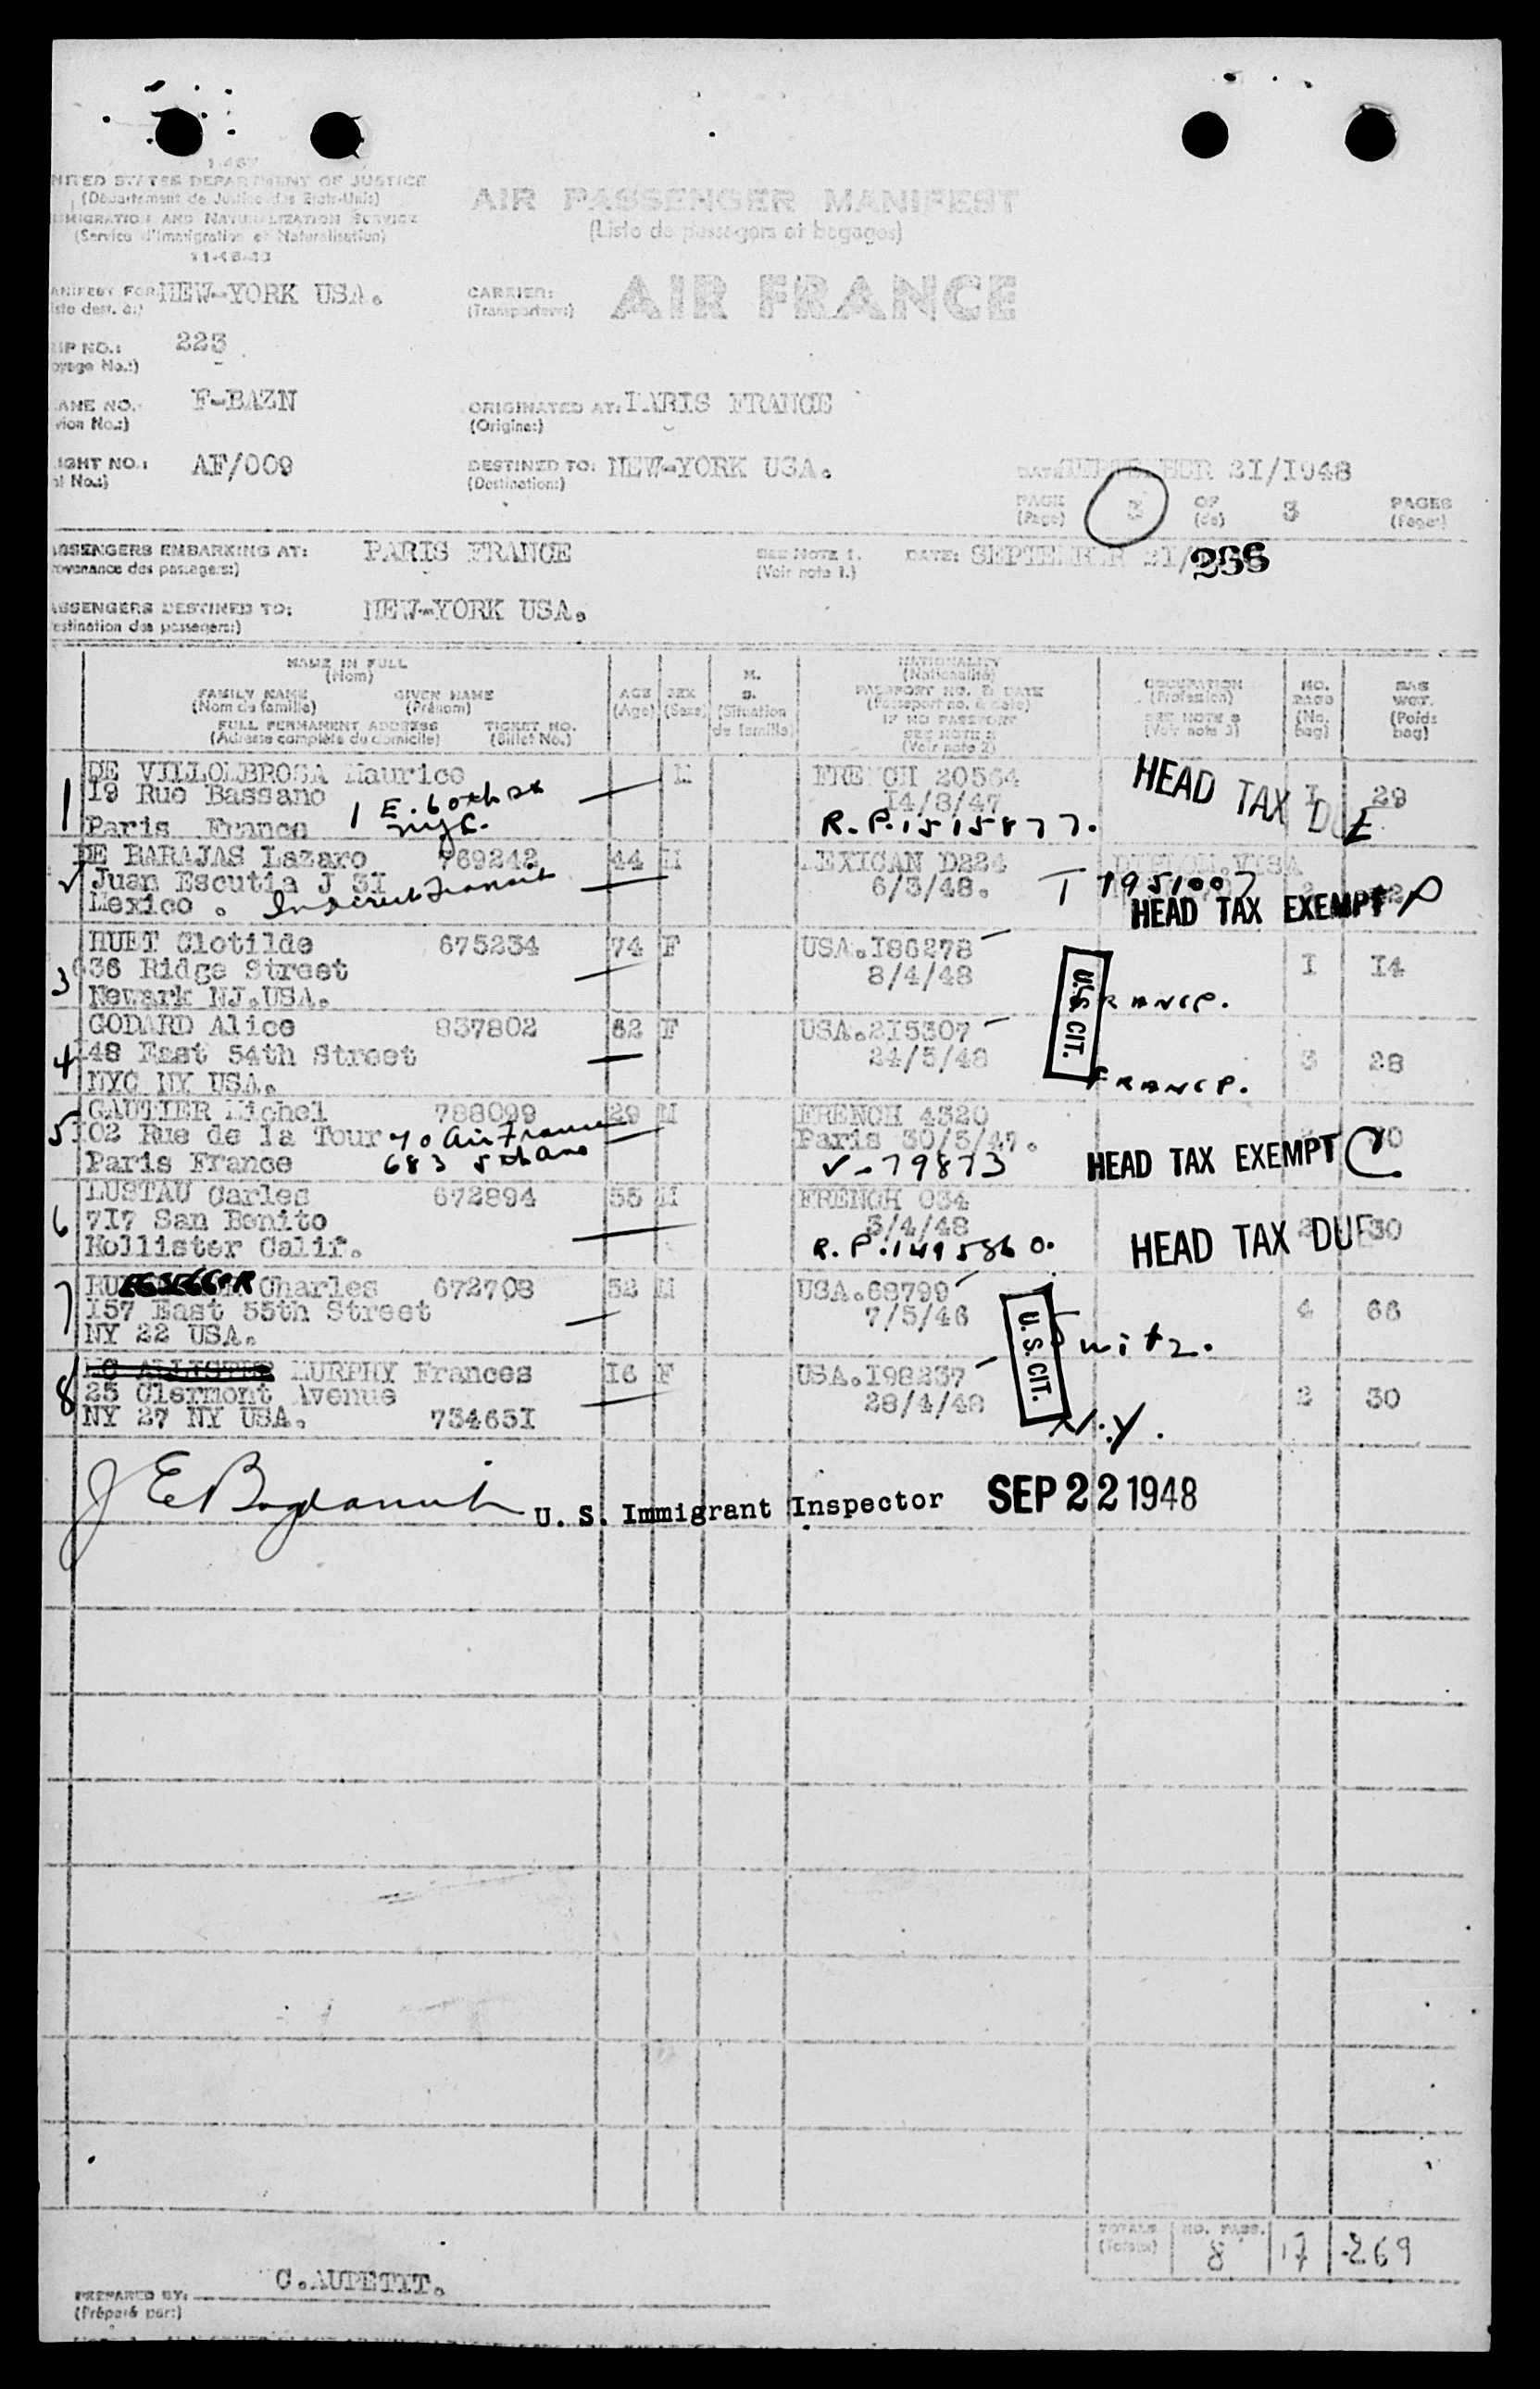 1-467
NITED STATES DEPARTMENT OF JUSTICE
(Département de Justice des Etats-Unis)
MMIGRATION AND NATURALIZATION SERVICE
(Service d'Immigration et Naturalisation)
AIR PASSENGER MANIFEST
(Liste de passagers et bagages)
ANIFEST FOR NEW-YORK USA.
iste dest. à:)
CARRIER: AIR FRANCE
(Transporteur:)
RIP NO.: 223
oyage No.:)
ANE NO. F-BAZN
vion No.:)
ORIGINATED AT: PARIS FRANCE
(Origine:)
IGHT NO.: AF/009
ol No.:)
DESTINED TO: NEW-YORK USA.
(Destination:)
DATE SEPTEMBER 21/1948
PAGE 3 OF 3 PAGES
(Page) (de) (Pages)
ASSENGERS EMBARKING AT: PARIS FRANCE
rovenance des passagers:)
SEE NOTE 1.
(Voir note 1.)
DATE: SEPTEMBER 21/
266
ASSENGERS DESTINED TO: NEW-YORK USA.
estination des passagers:)
NAME IN FULL
(Nom)
FAMILY NAME GIVEN NAME
(Nom de famille) (Prénom)
FULL PERMANENT ADDRESS TICKET NO.
(Adresse complète du domicile) (Billet No.)
AGE
(Age)
SEX
(Sexe)
M.
S.
(Situation
de famille)
NATIONALITY
(Nationalité)
PASSPORT NO. & DATE
(Passeport no. & date)
IF NO PASSPORT
SEE NOTE 2
(Voir note 2)
OCCUPATION
(Profession)
SEE NOTE 3
(Voir note 3)
NO.
BAGS
(No.
bag)
BAG
WGT.
(Poids
bag)
1 DE VILLOMBROSA Maurice M FRENCH 20564 I 29
19 Rue Bassano 1 E. 60th St 14/8/47 HEAD TAX DUE
Paris France nyc. R.P. 1515877.
DE BARAJAS Lazaro 769242 44 M MEXICAN D224 DIPLOM.VISA
Juan Escutia J 3I 6/3/48. T 1951007
Mexico . Indirect Transit HEAD TAX EXEMPT P
3 HUET Clotilde 675234 74 F USA.I86278 I I4
636 Ridge Street 8/4/48 U.S. CIT.
Newark NJ.USA. France.
4 GODARD Alice 837802 62 F USA.2I5307 3 28
148 East 54th Street 24/5/48
NYC NY USA. France.
5 GAUTIER Michel 788099 29 M FRENCH 4320
102 Rue de la Tour c/o Air France Paris 30/5/47.
Paris France 683 5th Ave V-79873 HEAD TAX EXEMPT C
6 LUSTAU Carles 672894 55 M FRENCH 034 30
717 San Benito 3/4/48
Hollister Calif. R.P. 1495860. HEAD TAX DUE
7 Charles 672703 52 M USA.68799 4 66
I57 East 55th Street 7/5/46 U.S. CIT.
NY 22 USA. Switz.
8 MC ALLISTER MURPHY Frances I6 F USA.I98237 2 30
25 Clermont Avenue 28/4/48
NY 27 NY USA. 73465I N.Y.
U. S. Immigrant Inspector SEP 22 1948
TOTALS NO. PASS. 8 17 269
(Totaux)
C.AUPETIT.
PREPARED BY:
(Préparé par:)